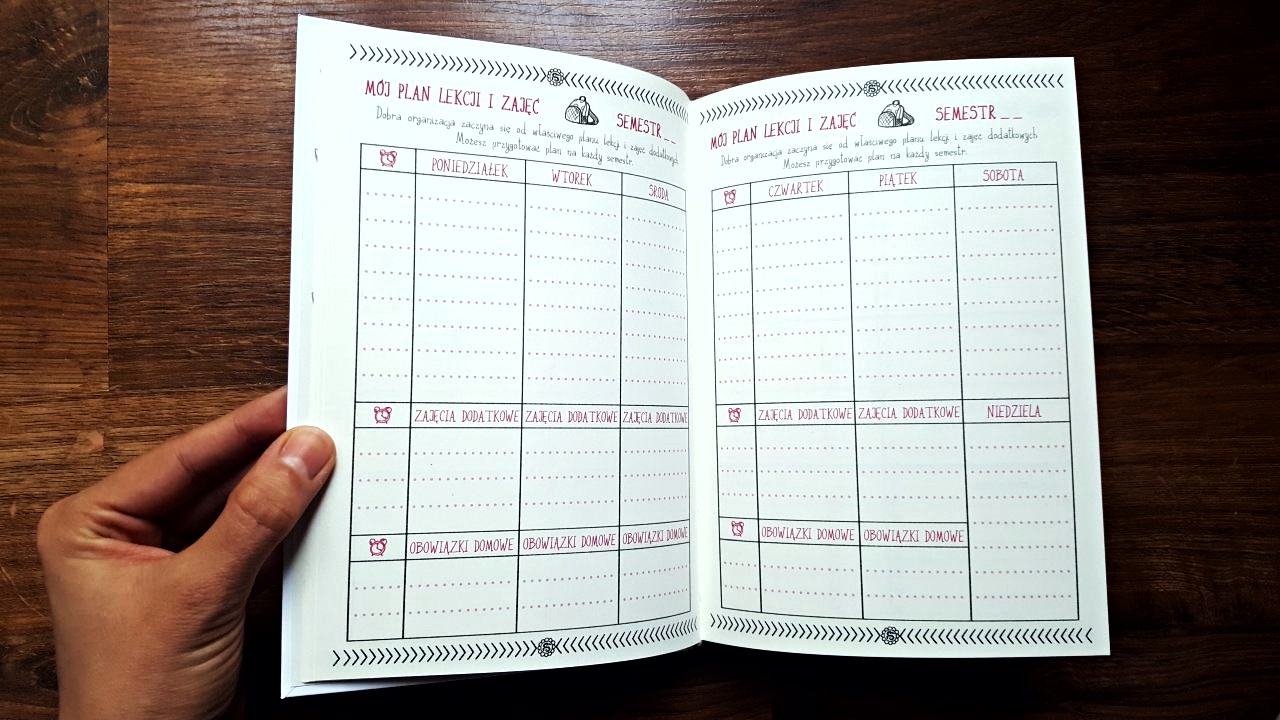 MÓJ PLAN LEKCJI I ZAJĘĆ
SEMESTR _ _
Dobra organizacja zaczyna się od właściwego planu lekcji i zajęć dodatkowych.
Możesz przygotować plan na każdy semestr.
PONIEDZIAŁEK WTOREK ŚRODA
ZAJĘCIA DODATKOWE ZAJĘCIA DODATKOWE ZAJĘCIA DODATKOWE
OBOWIĄZKI DOMOWE OBOWIĄZKI DOMOWE OBOWIĄZKI DOMOWE
MÓJ PLAN LEKCJI I ZAJĘĆ
SEMESTR _ _
Dobra organizacja zaczyna się od właściwego planu lekcji i zajęć dodatkowych.
Możesz przygotować plan na każdy semestr.
CZWARTEK PIĄTEK SOBOTA
ZAJĘCIA DODATKOWE ZAJĘCIA DODATKOWE NIEDZIELA
OBOWIĄZKI DOMOWE OBOWIĄZKI DOMOWE